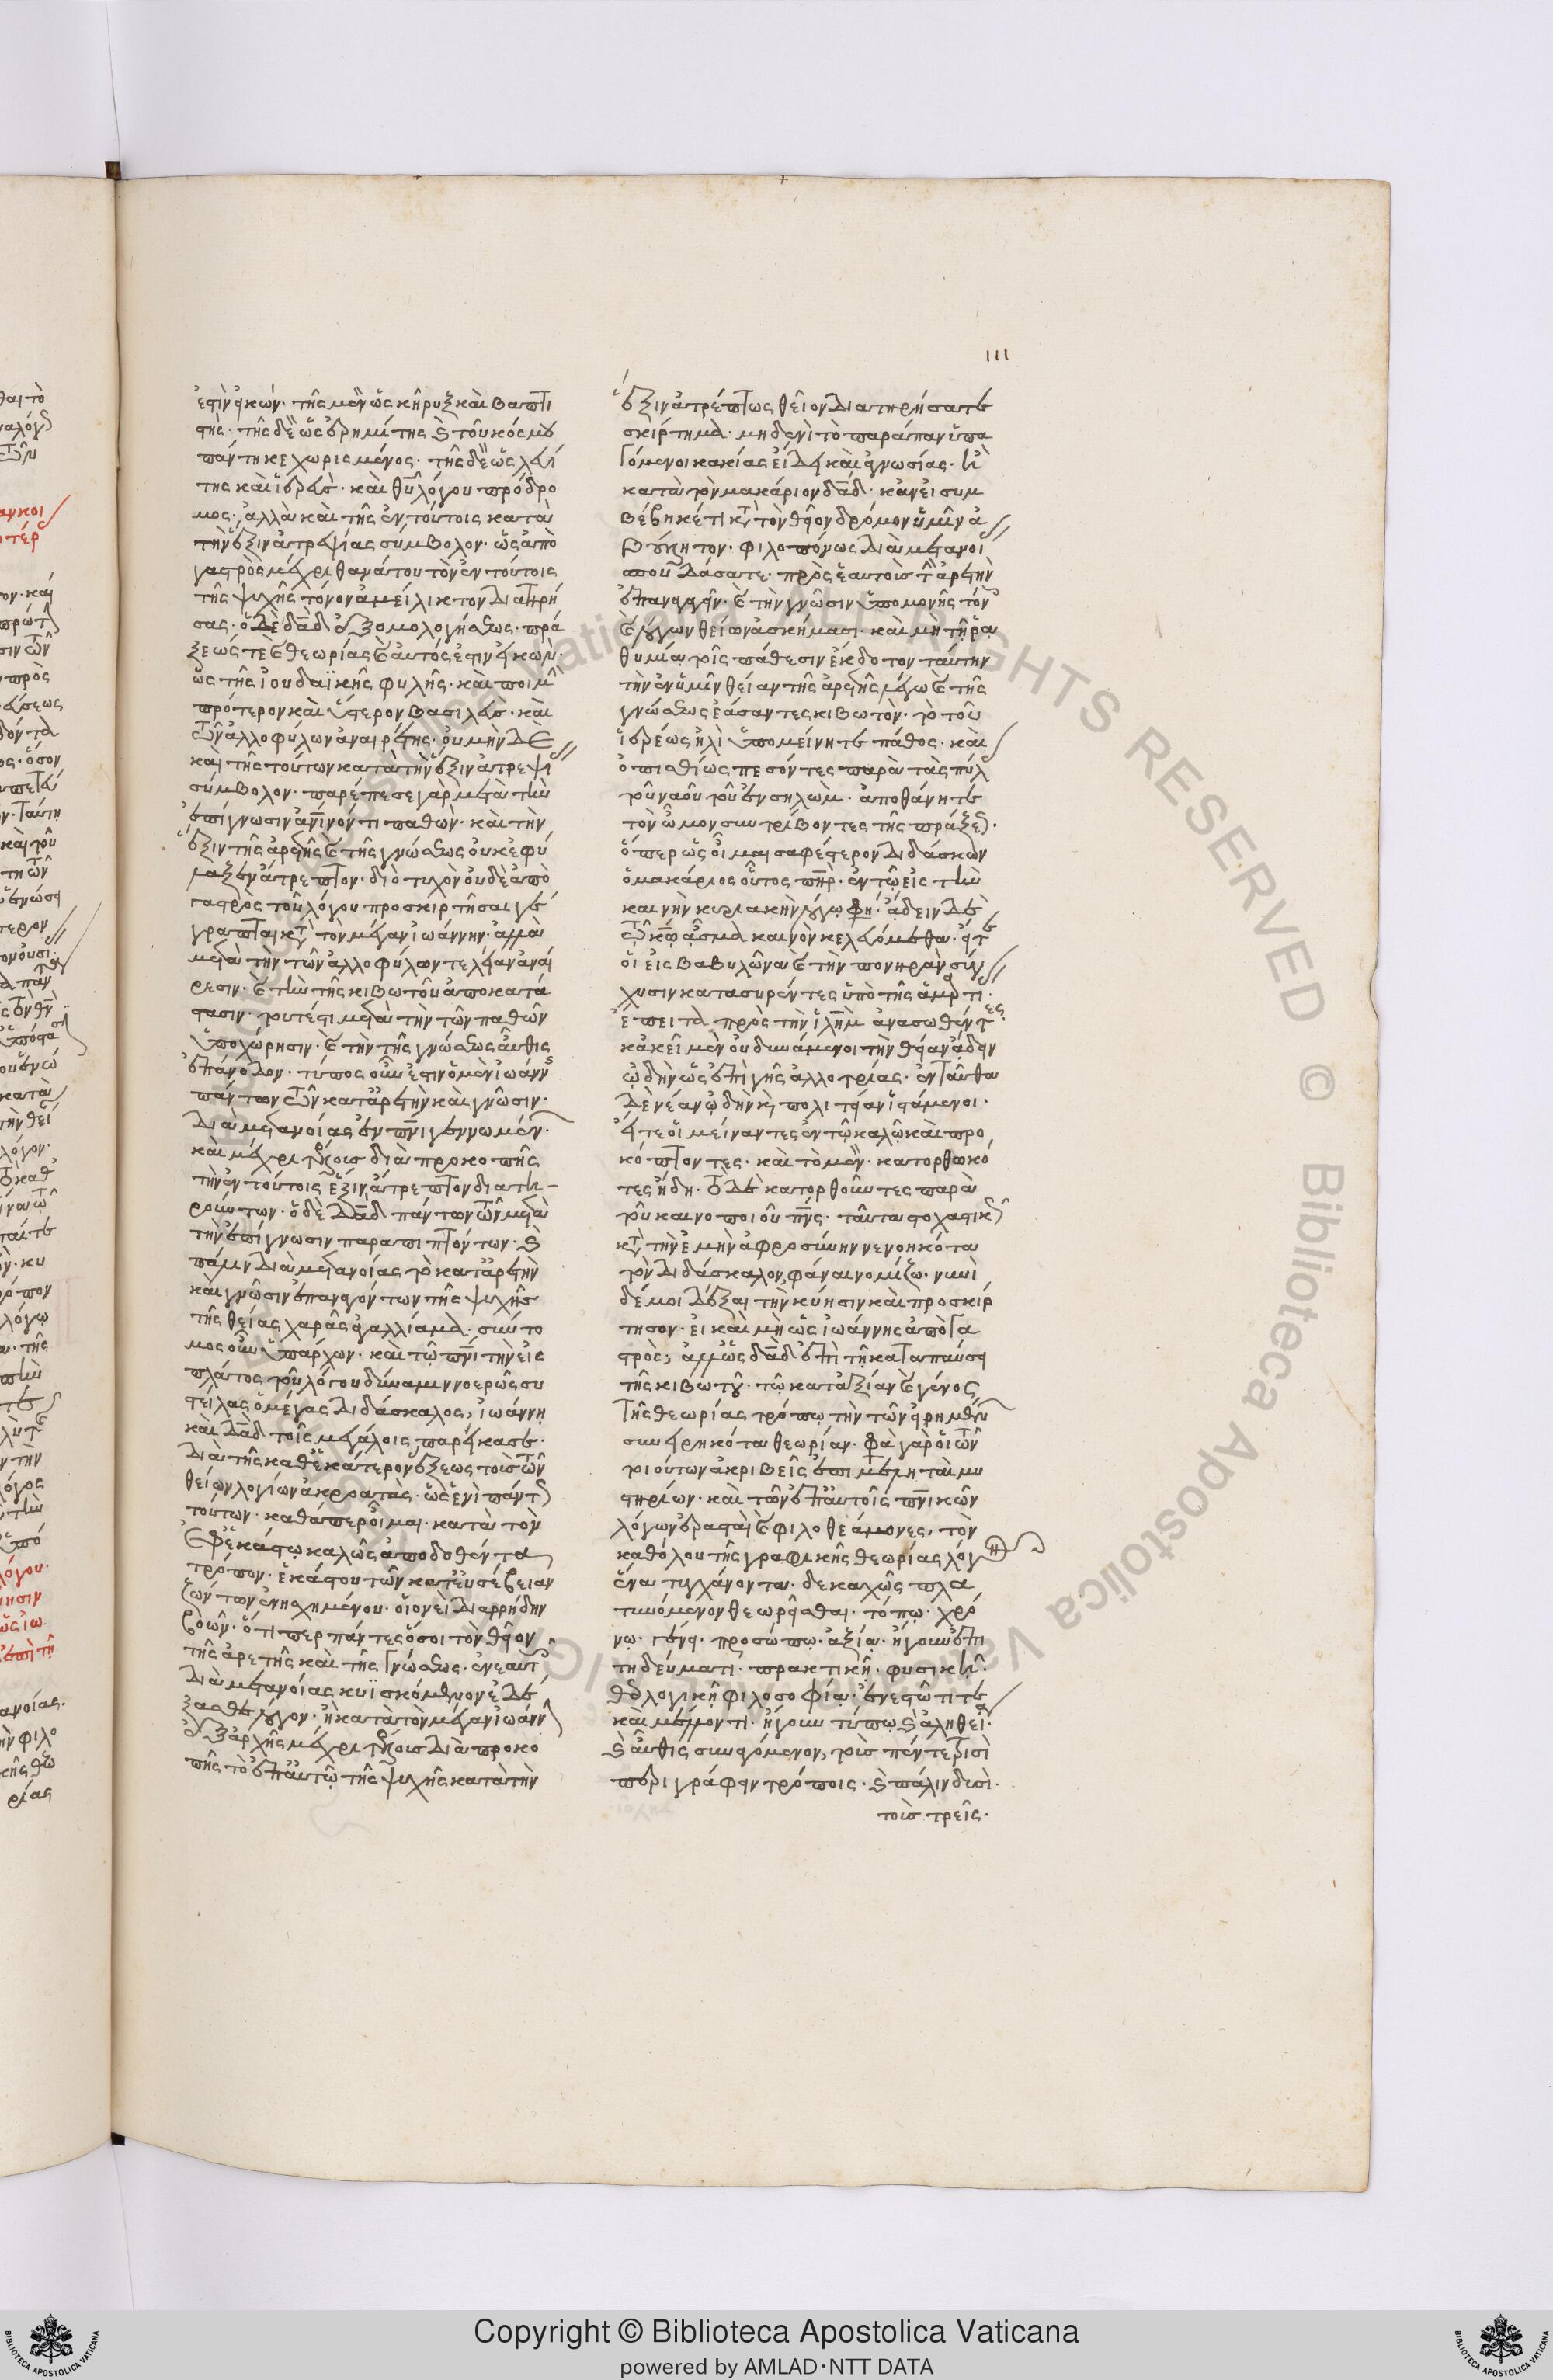 111
ἐστὶν εἰκών· τῆς μὲν ὡς κήρυξ καὶ βαπτι
στής· τῆς δὲ ὡς ἐρημίτης καὶ τοῦ κόσμου
πάντη κεχωρισμένος· τῆς δὲ ὡς λευί
της καὶ ἱερεὺς· καὶ θυ λόγου πρόδρο
μος· ἀλλὰ καὶ τῆς ἐν τούτοις κατὰ
τὴν ἕξιν ἀτρεψίας σύμβολον· ὡς ἀπὸ
γαστρὸς μέχρι θανάτου τὸν ἐν τούτοις
τῆς ψυχῆς τόνον ἀμείλικτον διατηρή
σας· ὁ δὲ δαδ ἐξομολογήσεως· πρά
ξεώς τε καὶ θεωρίας καὶ αὐτὸς ἐστὶν εἰκὼν·
ὡς τῆς ἰουδαϊκῆς φυλῆς· καὶ ποιμὴν
πρότερον καὶ ὕστερον βασιλεὺς· καὶ
τῶν ἀλλοφύλων ἀναιρέτης· οὐ μὴν δὲ
καὶ τῆς τούτων κατὰ τὴν ἕξιν ἀτρεψί
σύμβολον· παρέπεσε γὰρ μετὰ τὴν
ἐπίγνωσιν ἀνινόν τι παθὼν· καὶ τὴν
ἕξιν τῆς ἀρετῆς καὶ τῆς γνώσεως οὐκ ἐφύ
λαξεν ἄτρεπτον· διὸ τυχὸν οὐδὲ ἀπὸ
γαστρὸς τοῦ λόγου προσκιρτῆσαι γέ
γραπται κατὰ τὸν μέγαν ἰωάννην· ἀλλὰ
μετὰ τὴν τῶν ἀλλοφύλων τελείαν ἀναί
ρεσιν· καὶ τὴν τῆς κιβωτοῦ ἀποκατά
στασιν· τουτέστι μετὰ τὴν τῶν παθῶν
ὑποχώρησιν· καὶ τὴν τῆς γνώσεως αὖθις
ἐπάνοδον· τύπος οὖν ἐστὶν ὁ μὲν ἰωάνν
πάντων τῶν κατ' ἀρετὴν καὶ γνῶσιν·
διὰ μετανοίας ἐν πνι γεννωμέν·
καὶ μέχρι τέλους διὰ προκοπῆς
τὴν ἐν τούτοις ἕξιν ἄτρεπτον διατη-
ρούντων· ὁ δὲ δαδ πάντων τῶν μετὰ
τὴν ἐπίγνωσιν παραπιπτόντων· καὶ
πάλιν διὰ μετανοίας τὸ κατ' ἀρετὴν
καὶ γνῶσιν ἐπαναγόντων τῆς ψυχῆς
τῆς θείας χαρᾶς ἀγαλλίαμα· σύντο
μος οὖν ὑπάρχων· καὶ τῷ πνι τὴν εἰς
πλάτος τοῦ λόγου δύναμιν νοερῶς συ
στείλας ὁ μέγας διδάσκαλος, ἰωάννη
καὶ δαδ τοῖς μεγάλοις παρείκασε·
διὰ τῆς καθ' ἑκάτερον ἕξεως τοὺς τῶν
θείων λογίων ἀκροατὰς· ὡς ἑνὶ πάντ
τούτων· καθάπερ οἶμαι· κατὰ τὸν
ἐφ' ἑκάστῳ καλῶς ἀποδοθέντα
τρόπον· ἑκάστου τῶν κατ' εὐσέβειαν
ζώντων ἐνισχημένου· οἱονεὶ διαρρήδην
βοῶν· ὅτι περ πάντες ὅσοι τὸν θεῖον
τῆς ἀρετῆς καὶ τῆς γνώσεως· ἐν ἑαυτ
διὰ μετανοίας κυϊσκόμενον ἐδέ
ξασθε λόγον· ἢ κατὰ τὸν μέγαν ἰωάνν
ἐξ ἀρχῆς μέχρι τέλους διὰ προκο
πῆς τὸ ἐπ' αὐτῷ τῆς ψυχῆς κατὰ τὴν
ἕξιν ἀτρέπτως θεῖον διατηρήσατε
σκίρτημα· μηδενὶ τὸ παράπαν ὑπα
γόμενοι κακίας εἴδει καὶ ἀγνωσίας· ἢ
κατὰ τὸν μακάριον δαδ· κἂν εἰ συμ
βέβηκέ τι κατὰ τὸν θεῖον δρόμον ὑμῖν ἀ
βούλητον· φιλοπόνως διὰ μετανοί
σπουδάσατε· πρὸς ἑαυτοὺς τὴν ἀρετὴν
ἐπανάγειν· καὶ τὴν γνῶσιν ὑπομονῆς τόν
καὶ λόγων θείων ἀσκήμασι· καὶ μὴ τῇ ῥα
θυμίᾳ τοῖς πάθεσιν ἔκδοτον ταύτην
τὴν ἐν ὑμῖν θείαν τῆς ἀρετῆς λέγω καὶ τῆς
γνώσεως ἐάσαντες κιβωτὸν· τὸ τοῦ
ἱερέως ἠλὶ ὑπομείνητε πάθος· καὶ
ὀπισθίως πεσόντες παρὰ τὰς πύλ
τοῦ ναοῦ τοῦ ἐν σηλὼμ· ἀποθάνητε
τὸν ὦμον συντρίβοντες τῆς πράξεως·
ὅπερ ὡς οἶμαι σαφέστερον διδάσκων
ὁ μακάριος οὗτος πηρ· ἐν τῷ εἰς τὴν
καινὴν κυριακὴν λόγῳ φη· ᾄδειν δὲ
τῷ κω ᾆσμα καινὸν κελευόμεθα· εἴτε
οἱ εἰς βαβυλῶνα καὶ τὴν πονηρὰν σύγ
χυσιν κατασυρέντες ὑπὸ τῆς ἁμαρτί·
ἔπειτα πρὸς τὴν ἱλημ ἀνασωθέντες·
κἀκεῖ μὲν οὐ δυνάμενοι τὴν θείαν ᾄδειν
ᾠδὴν ὡς ἐπὶ γῆς ἀλλοτρίας· ἐνταῦθα
δὲ νέαν ᾠδὴν καὶ πολιτείαν ἱστάμενοι·
εἴτε οἱ μείναντες ἐν τῷ καλῷ καὶ προ
κόπτοντες· καὶ τὸ μὲν· κατορθωκό
τες ἤδη· τὸ δὲ κατορθοῦντες παρὰ
τοῦ καινοποιοῦ πνς· ταῦτα στοχαστικ
κατὰ τὴν ἐμὴν ἀφροσύνην νενοηκότα
τὸν διδάσκαλον, φάναι νομίζω· νυνὶ
δέ μοι δέξαι τὴν κύησιν καὶ προσκίρ
τησον· εἰ καὶ μὴ ὡς ἰωάννης ἀπὸ γα
στρὸς, ἀλλ' ὡς δαδ ἐπὶ τῇ καταπαύσει
τῆς κιβωτοῦ· τῷ κατ' ἀξίαν καὶ γένος
τῆς θεωρίας τρόπῳ τὴν τῶν εἰρημέν
συνῃρηκότα θεωρίαν· φασὶ γὰρ οἱ τῶν
τοιούτων ἀκριβεῖς ἐπιμεληταὶ μυ
στηρίων· καὶ τῶν ἐπ' αὐτοῖς πνικῶν
λόγων ἐρασταὶ καὶ φιλοθεάμονες, τὸν
καθόλου τῆς γραφικῆς θεωρίας λόγ
ἕνα τυγχάνοντα· δεκαχῶς πλα
τυνόμενον θεωρεῖσθαι· τόπῳ· χρό
νῳ· γένει· προσώπῳ· ἀξίᾳ· ἤγουν ἐπι
τηδεύματι· πρακτικῇ· φυσικῇ·
θεολογικῇ φιλοσοφίᾳ· ἐνεστῶτι τε
καὶ μέλλοντι· ἤγουν τύπῳ καὶ ἀληθείᾳ·
καὶ αὖθις συναγόμενον, τοὺς πέντε τρισὶ
περιγράφειν τρόποις· καὶ πάλιν δυσὶ·
τοὺς τρεῖς·
Copyright © Biblioteca Apostolica Vaticana
powered by AMLAD·NTT DATA